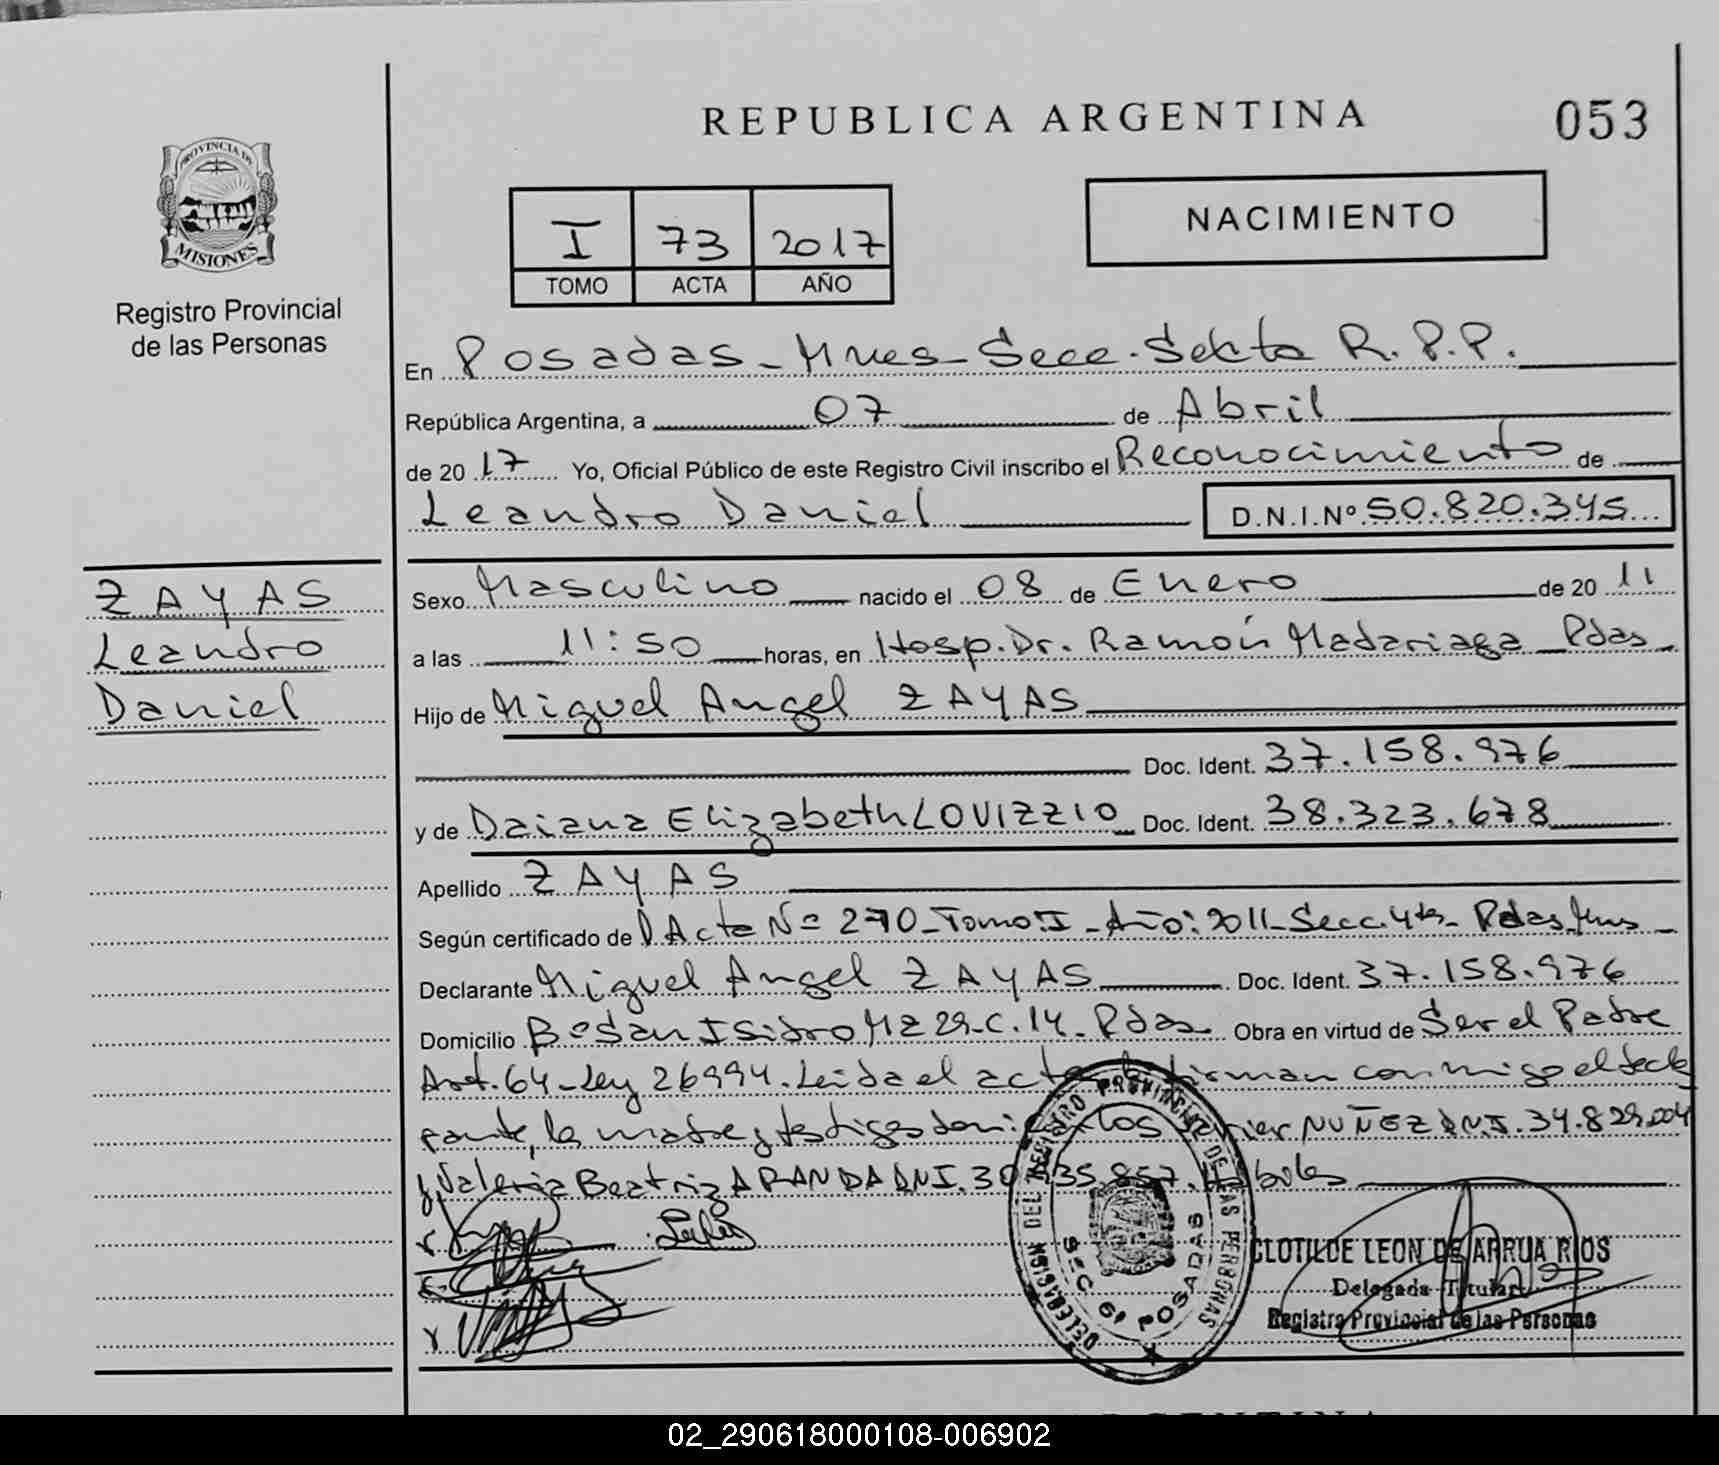 REPUBLICA ARGENTINA
053
PROVINCIA DE
MISIONES
Registro Provincial
de las Personas
I 73 2017
TOMO ACTA AÑO
NACIMIENTO
En Posadas - Mnes - Secc. Sexta R.P.P.
República Argentina, a 07 de Abril
de 2017 Yo, Oficial Público de este Registro Civil inscribo el Reconocimiento de
Leandro Daniel D.N.I.Nº 50.820.345
ZAYAS
Leandro
Daniel
Sexo Masculino nacido el 08 de Enero de 2011
a las 11:50 horas, en Hosp. Dr. Ramón Madariaga Pdas
Hijo de Miguel Angel ZAYAS
Doc. Ident. 37.158.976
y de Daiana Elizabeth LOVIZZIO Doc. Ident. 38.323.678
Apellido ZAYAS
Según certificado del Acta Nº 270 - Tomo: I - Año: 2011 - Secc. 4ta - Pdas Mns
Declarante Miguel Angel ZAYAS Doc. Ident. 37.158.976
Domicilio Bº San Isidro Mz 29 - C. 14 - Pdas Obra en virtud de Ser el Padre
Art. 64 - Ley 26994. Leida el acta firman conmigo el decla
rante, la madre y testigos NUÑEZ DNI. 34.829.004
y Valeria Beatriz ARANDA DNI. 30
DELEGACION DEL REGISTRO PROVINCIAL DE LAS PERSONAS
SEC 6º POSADAS
CLOTILDE LEON DE ARRUA RIOS
Delegada Titular
Registro Provincial de las Personas
02_290618000108-006902